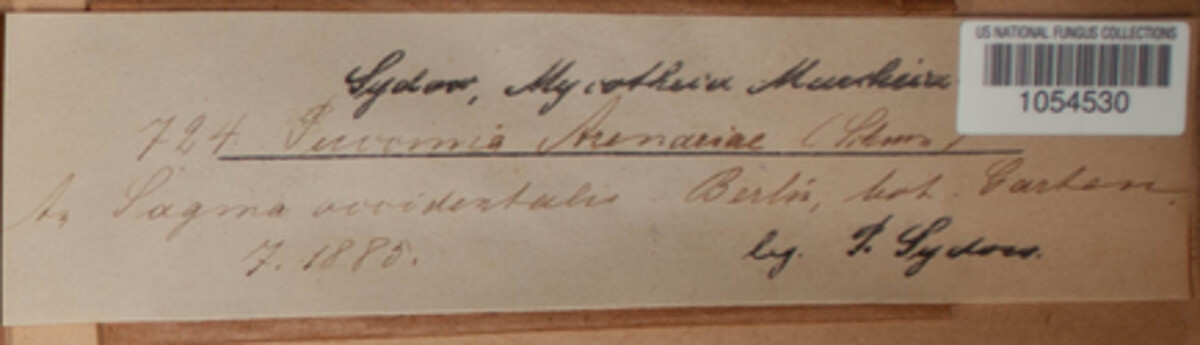 US NATIONAL FUNGUS COLLECTIONS
1054530
Sydow, Mycotheca Marchica
724. Puccinia Arenariae (Schum.)
An Sagina occidentalis Berlin, bot. Garten
7. 1885.
leg. P. Sydow.